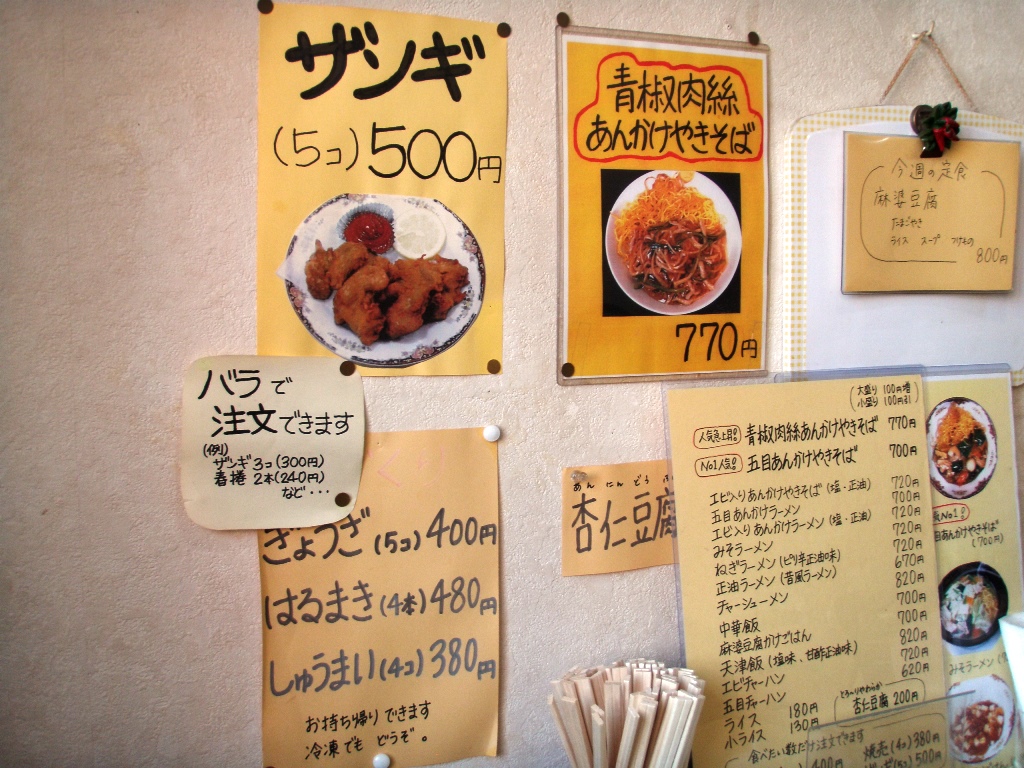 ザンギ
(5コ)500円
青椒肉絲
あんかけやきそば
770円
今週の定食
麻婆豆腐
たまごやき
ライス スープ つけもの
800円
バラで
注文できます
(例)
ザンギ 3コ (300円)
春捲 2本 (240円)
など・・・
ぎょうざ(5コ)400円
はるまき(4本)480円
しゅうまい(4コ)380円
お持ち帰りできます
冷凍でも どうぞ。
あんにんどう
杏仁豆腐
(大盛り 100円増
小盛り 100円引)
人気急上昇! 青椒肉絲あんかけやきそば 770円
No1人気! 五目あんかけやきそば 700円
エビ入りあんかけやきそば(塩・正油) 720円
五目あんかけラーメン 700円
エビ入りあんかけラーメン(塩・正油) 720円
みそラーメン 720円
ねぎラーメン(ピリ辛正油味) 670円
正油ラーメン(昔風ラーメン) 820円
チャーシューメン 700円
中華飯 700円
麻婆豆腐かけごはん 820円
天津飯(塩味、甘酢正油味) 720円
エビチャーハン 620円
五目チャーハン
ライス 180円
小ライス 130円
とろ〜りやわらか
杏仁豆腐 200円
食べたい数だけ注文できます
焼売(4コ)380円
(5コ)500円
400円
気No1!
目あんかけやきそば
(700円)
みそラーメン